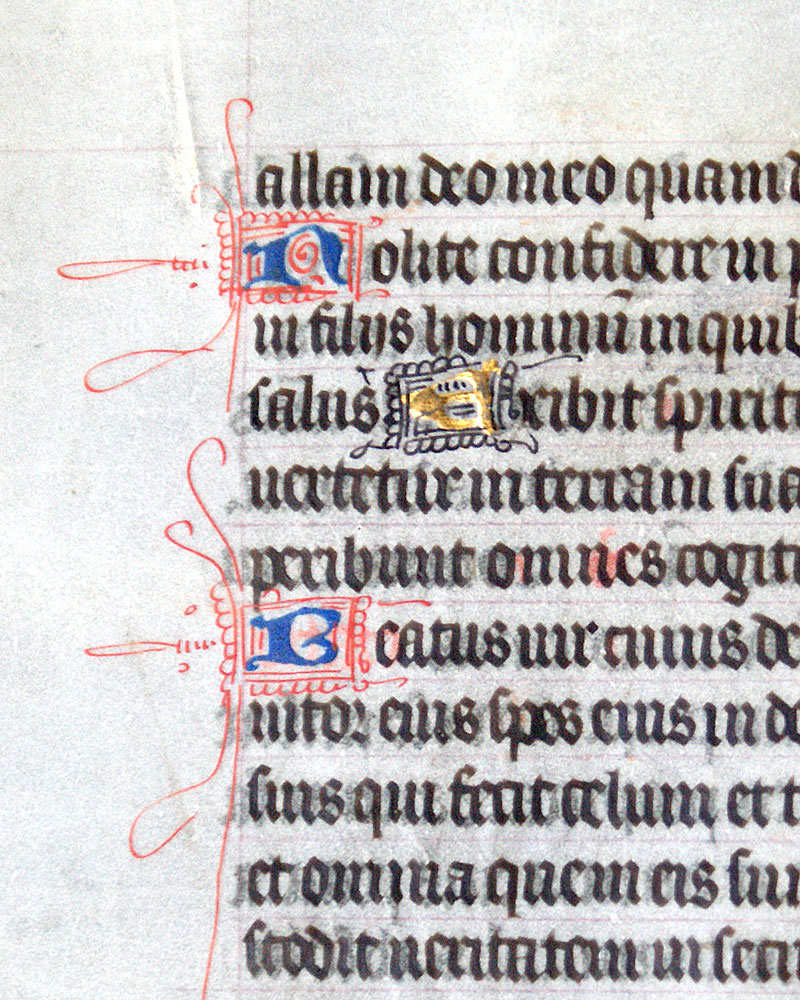 allam deo meo quam
Nolite confidere in p
in filijs hominū in quib
salus Exibit spirit
uertetur in terram sua
peribunt omnes cogit
Beatus uir cuius de
iutor eius spes eius in d
suis qui fecit celum et t
et omnia que in eis sun
stodit ueritatem in sec